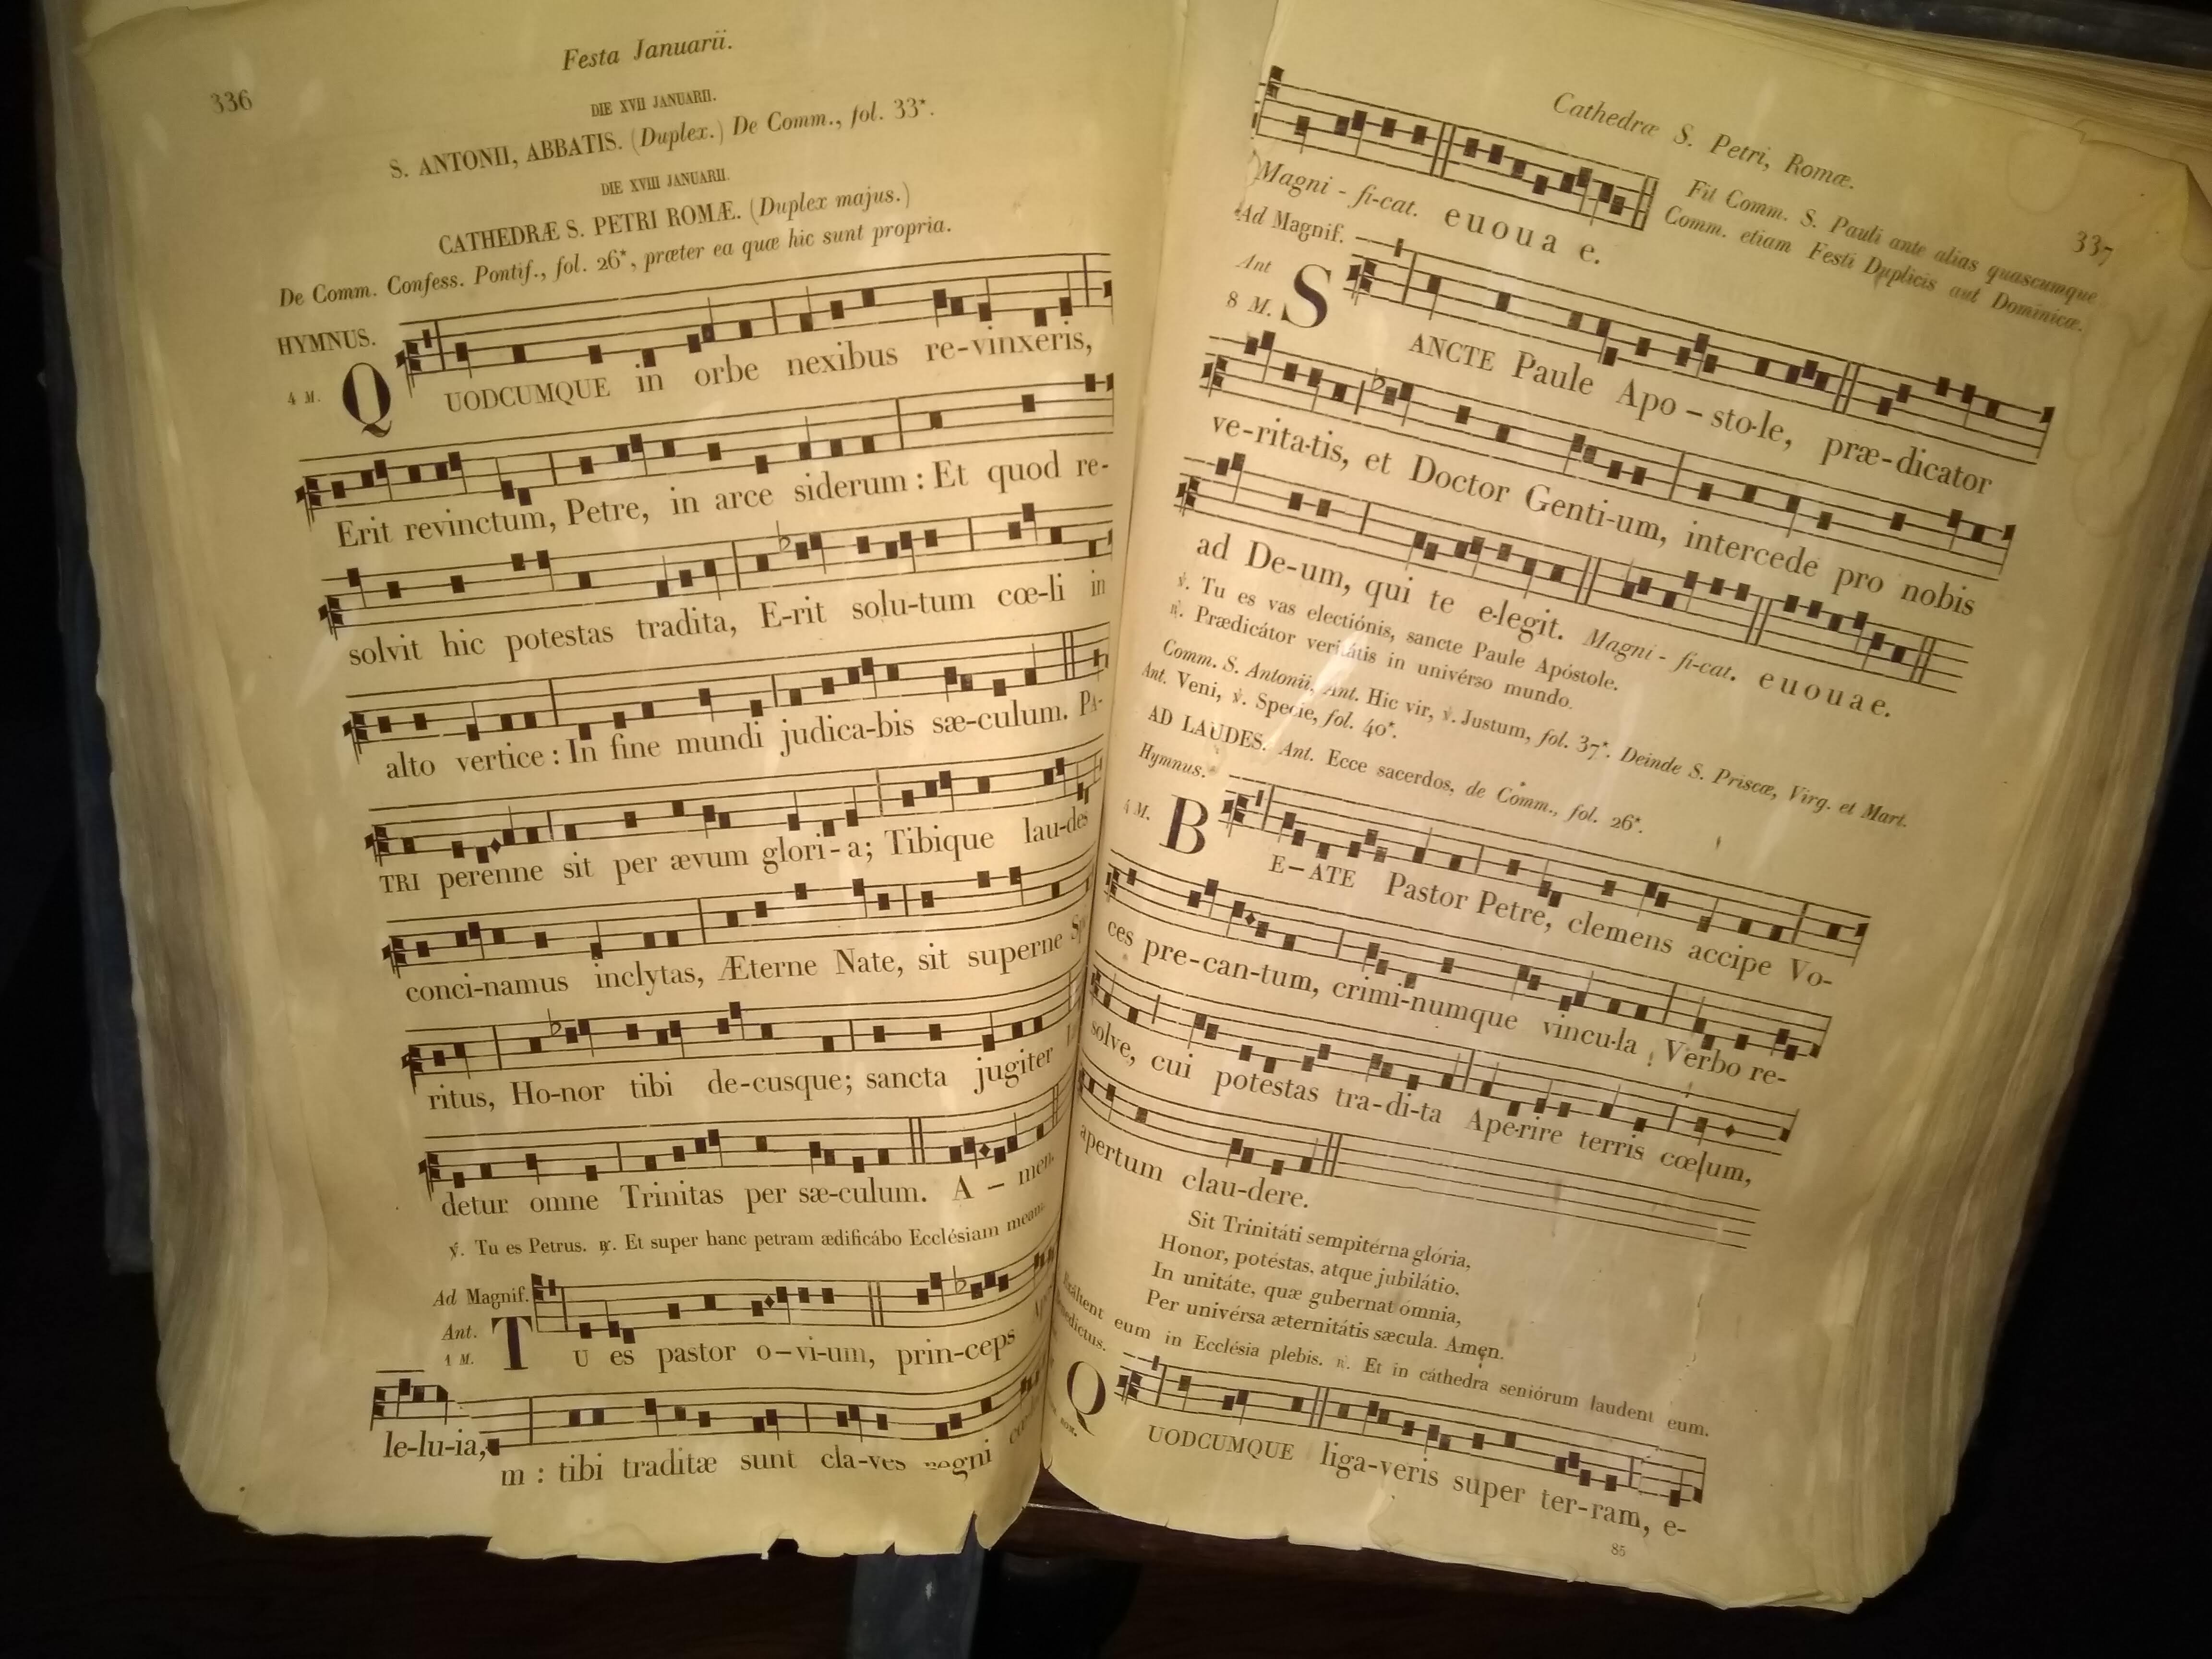 336
Festa Januarii.
DIE XVII JANUARII.
S. ANTONII, ABBATIS. (Duplex.) De Comm., fol. 33*.
DIE XVIII JANUARII.
CATHEDRÆ S. PETRI ROMÆ. (Duplex majus.)
De Comm. Confess. Pontif., fol. 26*, præter ea quæ hic sunt propria.
HYMNUS.
4 M.
QUODCUMQUE in orbe nexibus re-vinxeris,
Erit revinctum, Petre, in arce siderum : Et quod re-
solvit hic potestas tradita, E-rit solu-tum cœ-li in
alto vertice : In fine mundi judica-bis sæ-culum. PA-
TRI perenne sit per ævum glori-a; Tibique lau-des
conci-namus inclytas, Æterne Nate, sit superne
ritus, Ho-nor tibi de-cusque; sancta jugiter
detur omne Trinitas per sæ-culum. A - men.
℣. Tu es Petrus. ℟. Et super hanc petram ædificábo Ecclésiam meam.
Ad Magnif.
Ant.
1 M.
TU es pastor o-vi-um, prin-ceps
le-lu-ia,
m : tibi traditæ sunt cla-ves regni
Cathedræ S. Petri, Romæ.
337
Magni - fi-cat. e u o u a e.
Fit Comm. S. Pauli ante alias quascumque
Comm. etiam Festi Duplicis aut Dominicæ.
Ad Magnif.
Ant
8 M.
SANCTE Paule Apo - sto-le, præ-dicator
ve-rita-tis, et Doctor Genti-um, intercede pro nobis
ad De-um, qui te e-legit. Magni - fi-cat. e u o u a e.
℣. Tu es vas electiónis, sancte Paule Apóstole.
℟. Prædicátor veritátis in univérso mundo.
Comm. S. Antonii, Ant. Hic vir, ℣. Justum, fol. 37*. Deinde S. Priscæ, Virg. et Mart.
Ant. Veni, ℣. Specie, fol. 40*.
AD LAUDES. Ant. Ecce sacerdos, de Comm., fol. 26*.
Hymnus.
4 M.
BE-ATE Pastor Petre, clemens accipe Vo-
ces pre-can-tum, crimi-numque vincu-la Verbo re-
solve, cui potestas tra-di-ta Ape-rire terris cœlum,
apertum clau-dere.
Sit Trinitáti sempitérna glória,
Honor, potéstas, atque jubilátio,
In unitáte, quæ gubernat ómnia,
Per univérsa æternitátis sæcula. Amen.
Exáltent eum in Ecclésia plebis. ℟. Et in cáthedra seniórum laudent eum.
QUODCUMQUE liga-veris super ter-ram, e-
85